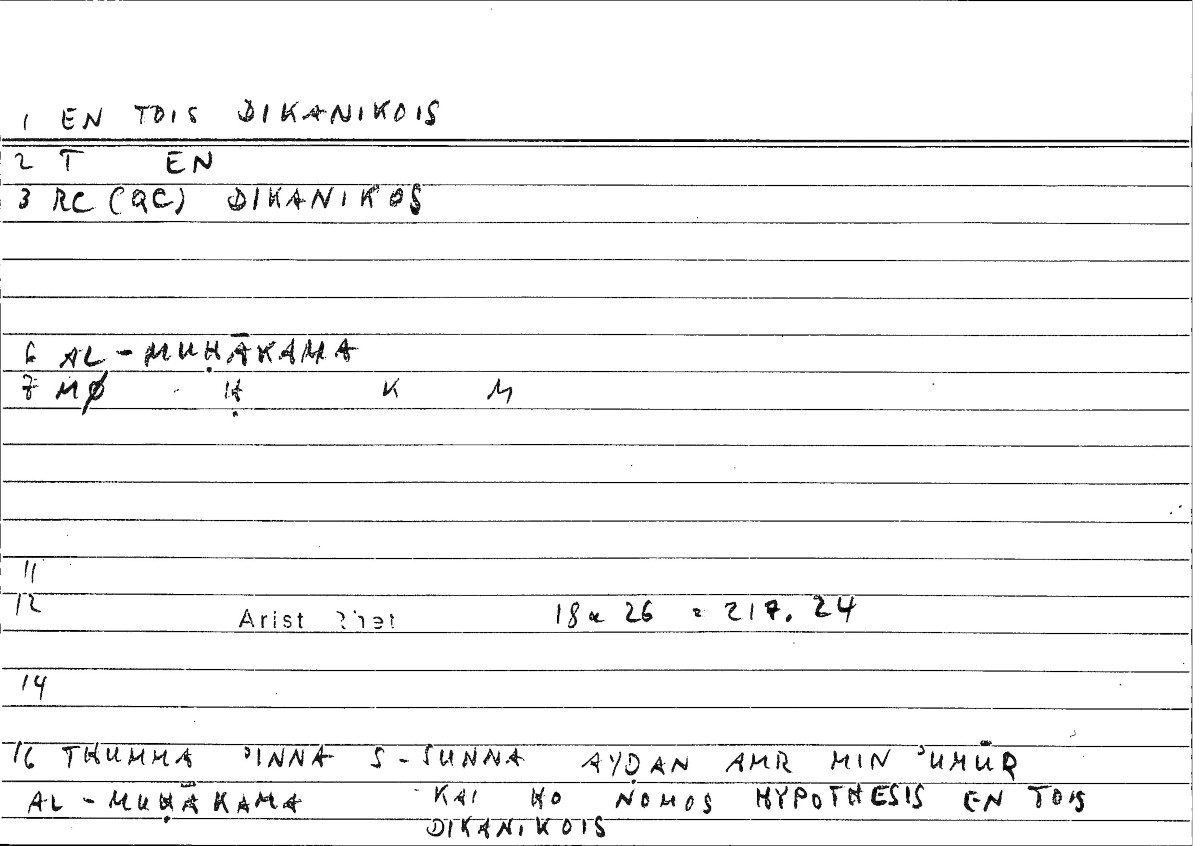 1 EN TOIS DIKANIKOIS
2 T EN
3 RC (QC) DIKANIKOS
6 AL-MUḤĀKAMA
7 MØ Ḥ K M
11
12 Arist Rhet 18a 26 = 217.24
14
16 THUMMA ʾINNA S-SUNNA AYḌAN AMR MIN ʾUMŪR
AL-MUḤĀKAMA KAI HO NOMOS HYPOTHESIS EN TOIS
DIKANIKOIS